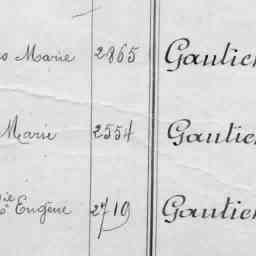 Marie 2865 Gautier
Marie 2554 Gautier
Eugène 2719 Gautier